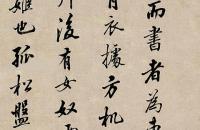 而書者為東
青衣據方机
後有女奴雲
姬也孤松盤